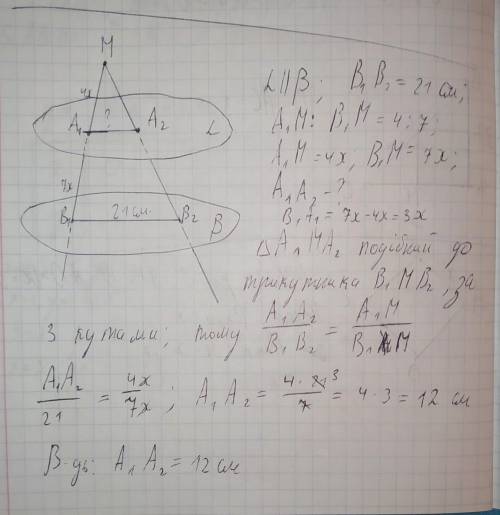 M
4x
A₁ ? A₂ L
7x
B₁ 21 см. B₂ β
L || β ; B₁B₂ = 21 см;
A₁M : B₁M = 4 : 7;
A₁M = 4x, B₁M = 7x;
A₁A₂ - ?
B₁A₁ = 7x - 4x = 3x
△ A₁MA₂ подібний до
трикутника B₁MB₂, за
3 кутами; тому A₁A₂/B₁B₂ = A₁M/B₁M
A₁A₂/21 = 4x/7x ; A₁A₂ = 4·21³/7 = 4·3 = 12 см
В-дь: A₁A₂ = 12 см